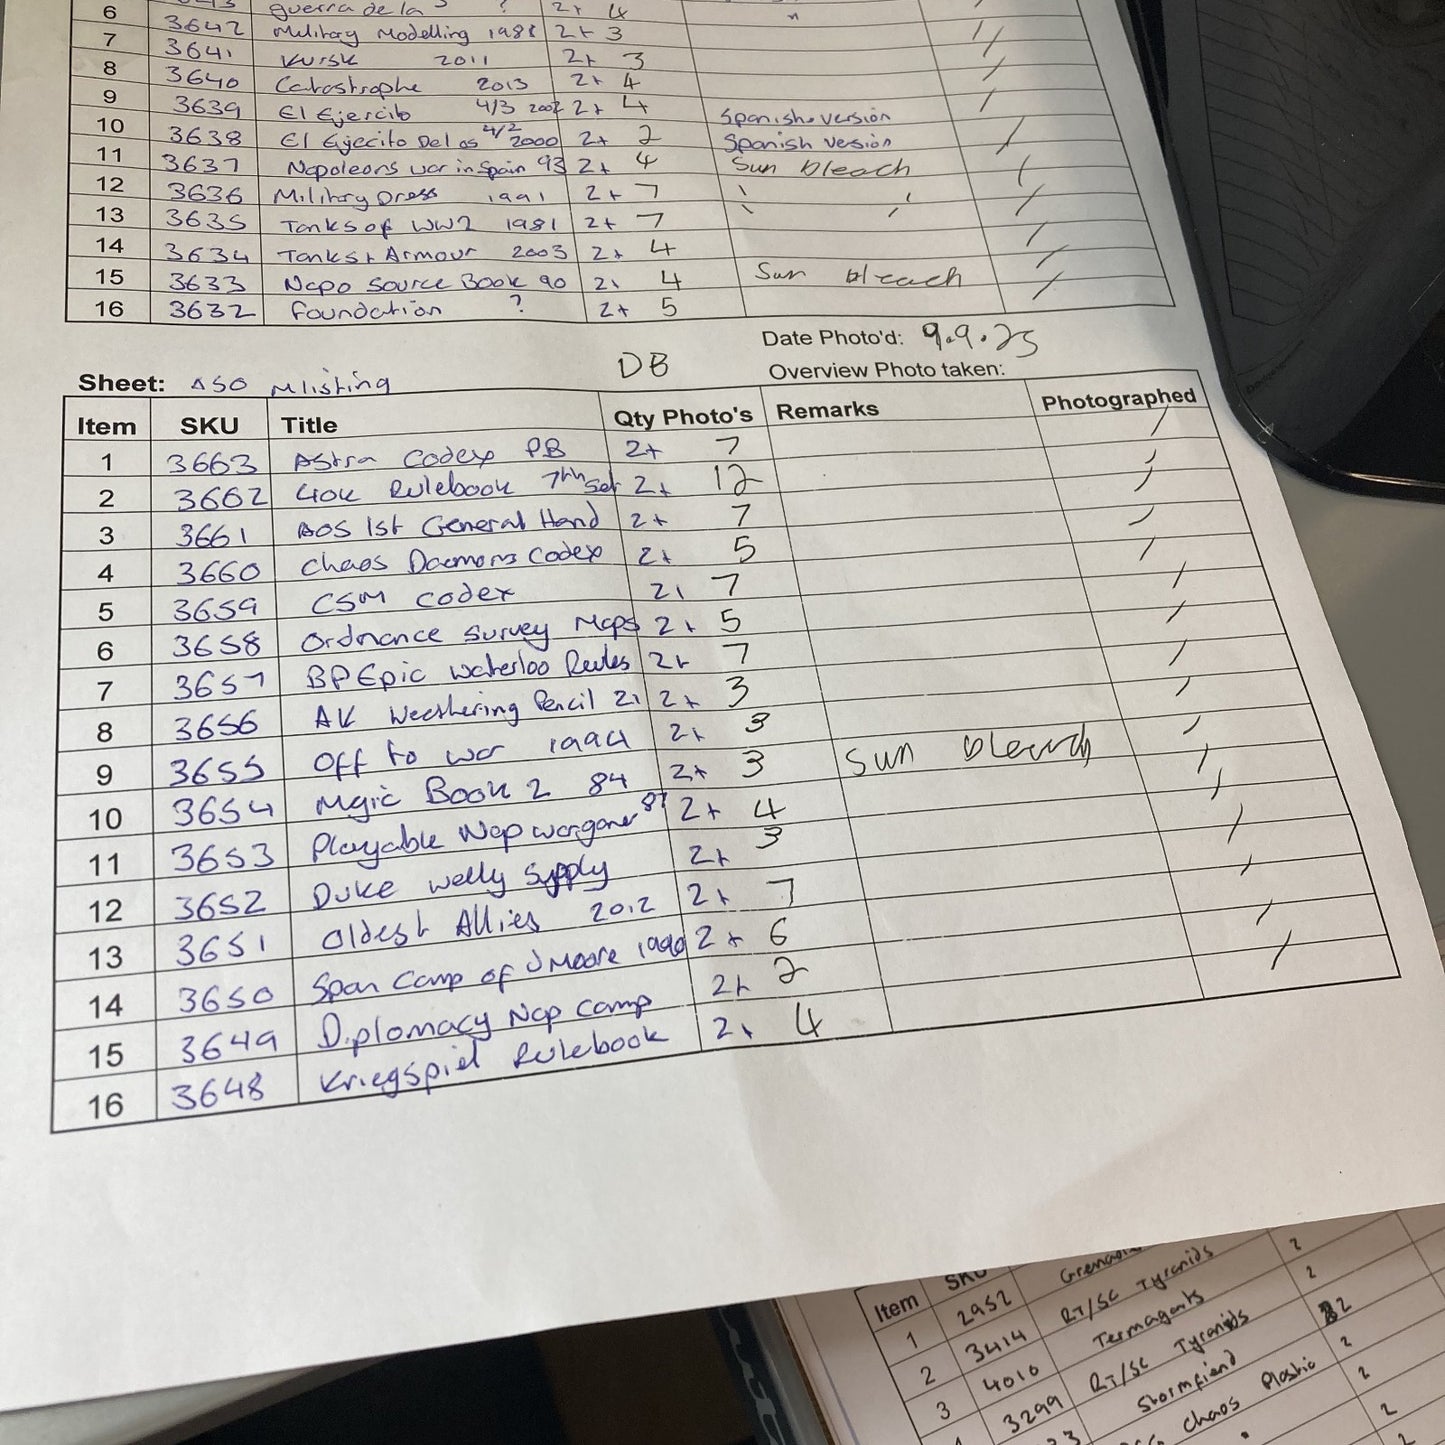 6 guerra de la ? 2+ 4
7 3642 Military Modelling 1988 2+ 3
8 3641 Kursk 2011 2+ 3
9 3640 Catastrophe 2013 2+ 4
10 3639 El Ejercito 4/3 2002 2+ 4 Spanish version
11 3638 El Ejecito Del as 4/2 2000 2+ 2 Spanish version
12 3637 Napoleons war in Spain 93 2+ 4 Sun bleach
13 3636 Military Dress 1991 2+ 7
14 3635 Tanks of WW2 1981 2+ 7
15 3634 Tanks + Armour 2003 2+ 4
16 3633 Napo Source Book 90 2+ 4 Sun bleach
3632 foundation ? 2+ 5
Date Photo'd: 9.9.25
Sheet: ASO Mlisting DB Overview Photo taken:
Item SKU Title Qty Photo's Remarks Photographed
1 3663 Astra Codex PB 2+ 7
2 3662 40k Rulebook 7th set 2+ 12
3 3661 AOS 1st General Hand 2+ 7
4 3660 Chaos Daemons Codex 2+ 5
5 3659 CSM Codex 2+ 7
6 3658 Ordnance Survey Maps 2+ 5
7 3657 BP Epic Waterloo Rules 2+ 7
8 3656 AK Weathering Pencil 21 2+ 3
9 3655 Off to war 1994 2+ 3
10 3654 Mgic Book 2 84 2+ 3 Sun bleach
11 3653 Playable Nap wargamer 87 2+ 4
12 3652 Duke welly Supply 2+ 3
13 3651 Oldest Allies 2012 2+ 7
14 3650 Span Camp of J Moore 1990 2+ 6
15 3649 Diplomacy Nap Camp 2+ 2
16 3648 Kriegspiel Rulebook 2+ 4
Item SKU
1 2952 2
2 3414 RT/SC Tyranids 2
3 4010 Termagants 2
3299 RT/SC Tyranids 2
Stormfiend 2
Chaos Plastic 2
2